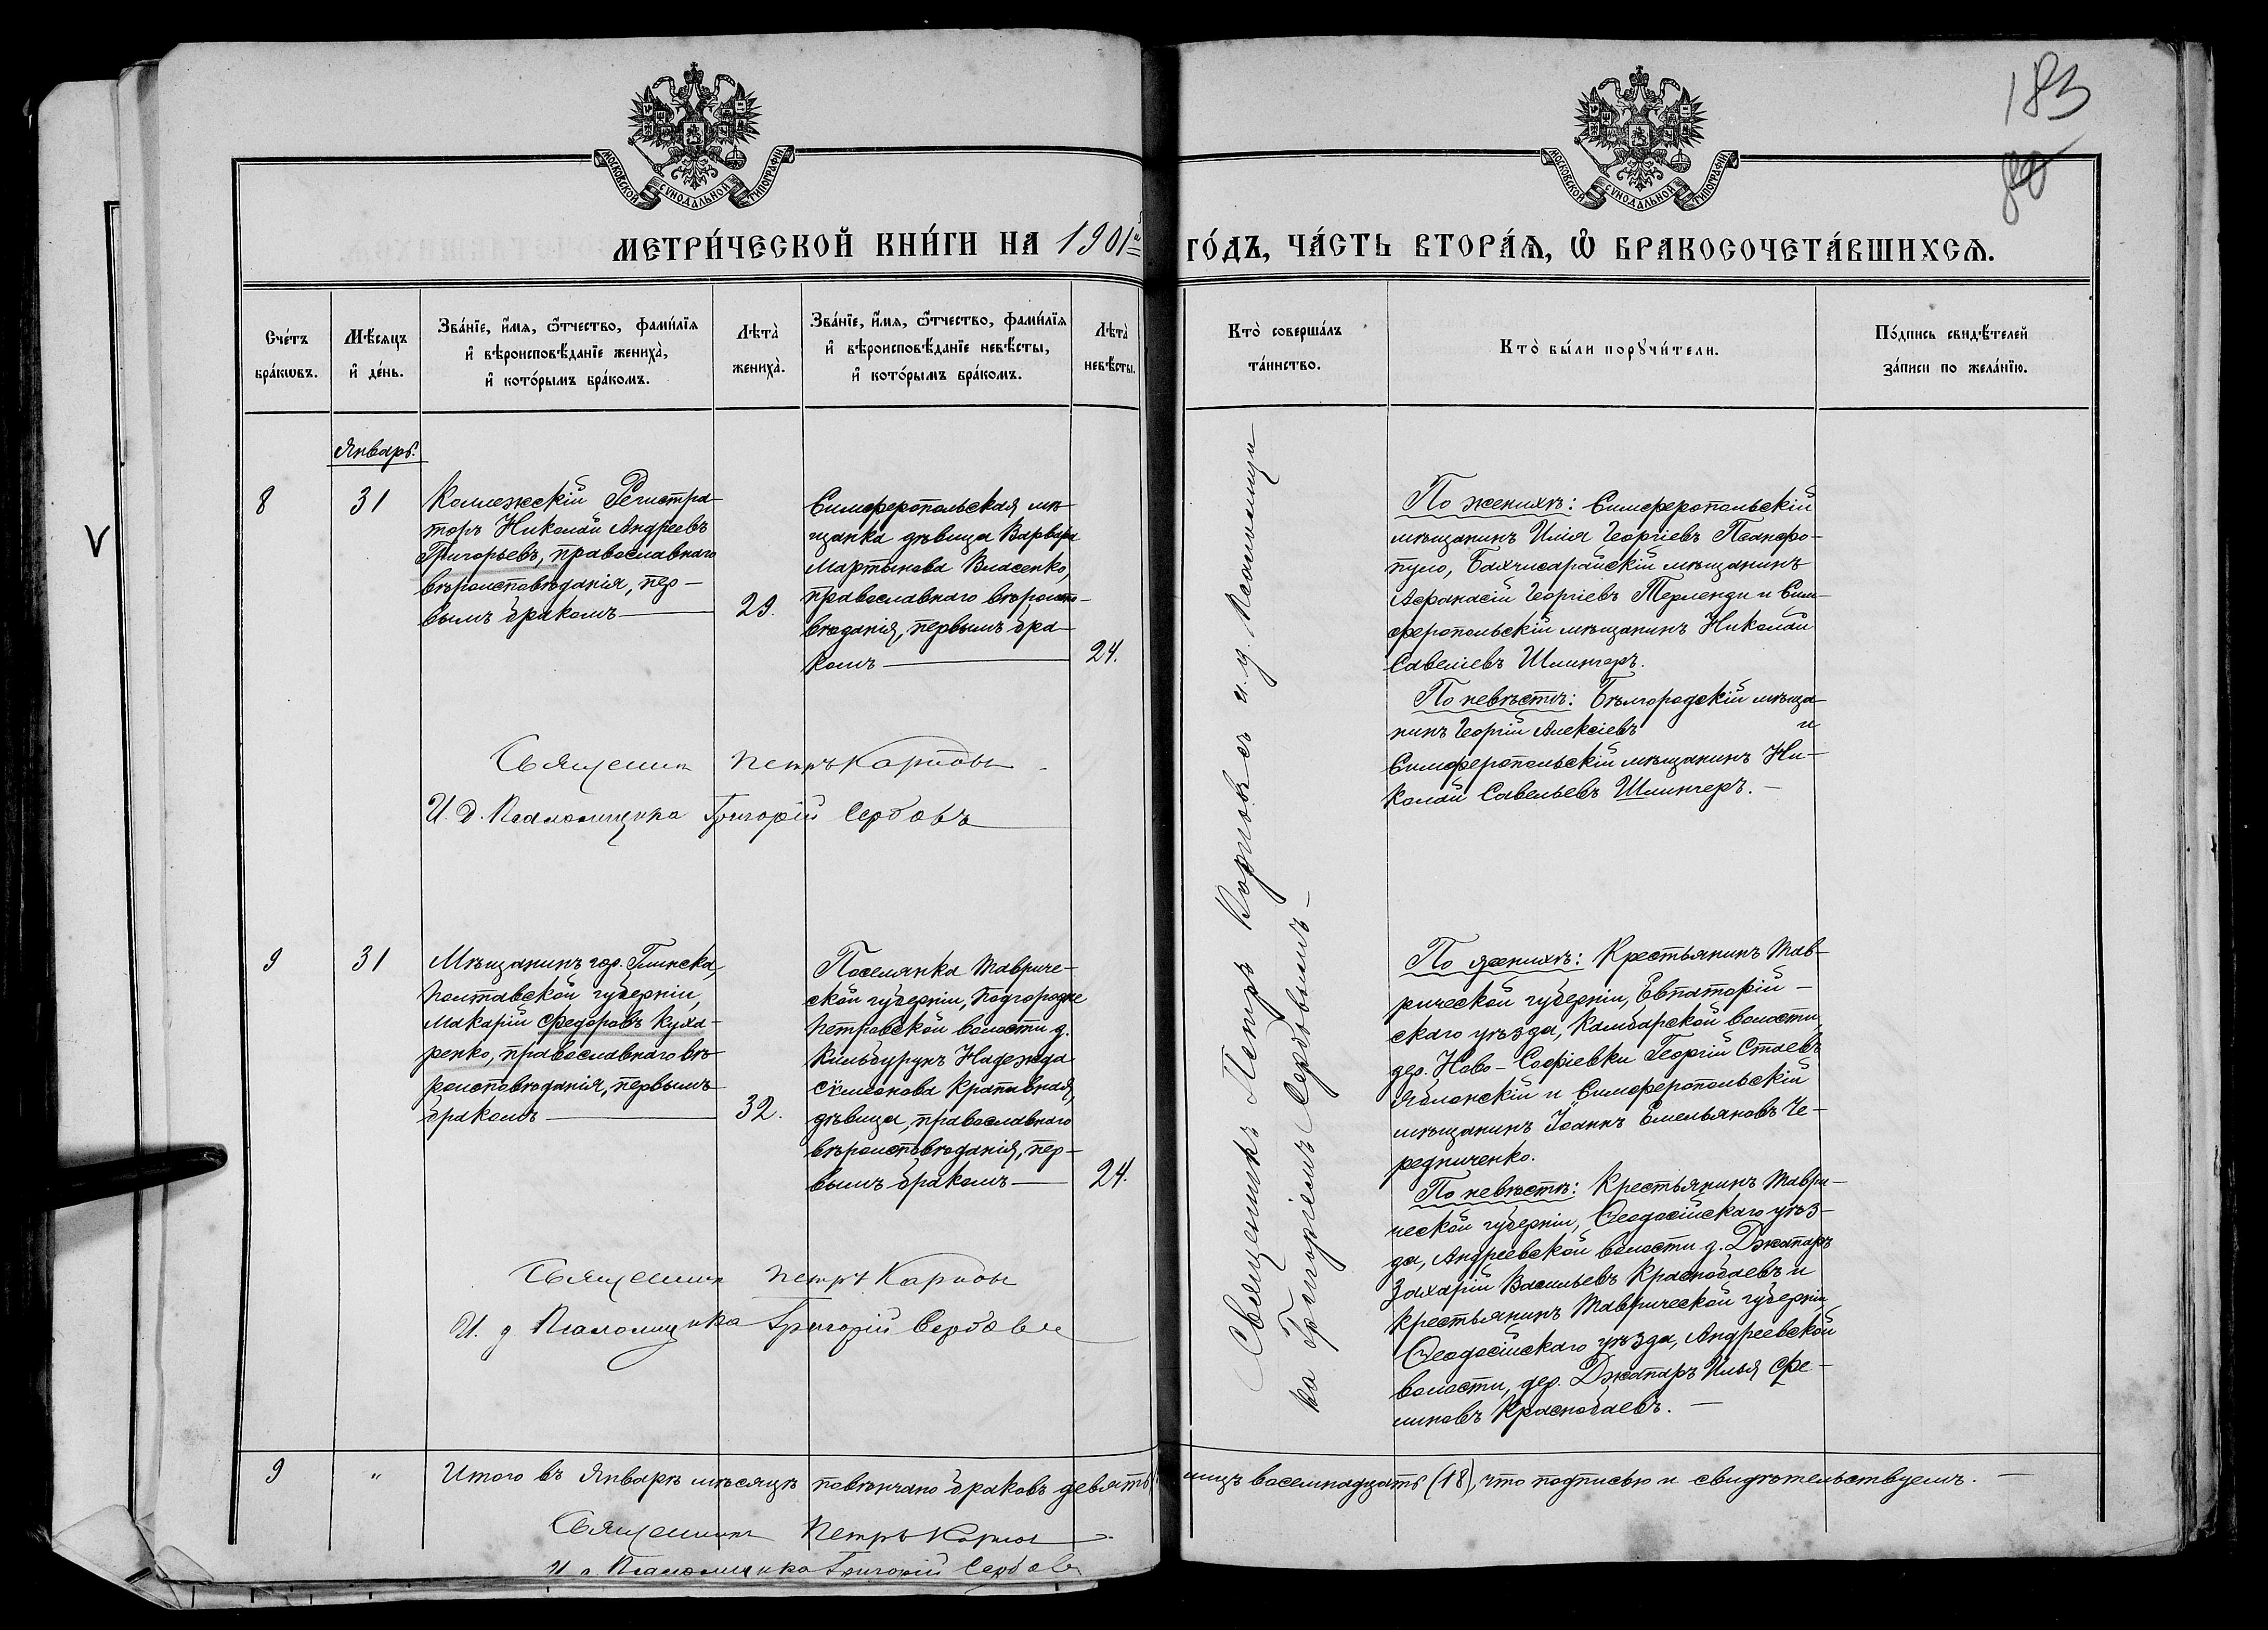 183
80
МОСКОВСКОЙ СУНОДАЛЬНОЙ ТИПОГРАФІИ
МОСКОВСКОЙ СУНОДАЛЬНОЙ ТИПОГРАФІИ
МЕТРИ́ЧЕСКОЙ КНИ́ГИ НА 1901й ГО́ДЪ, ЧА́СТЬ ВТОРА́Ѧ, Ѡ҆ БРАКОСОЧЕТА́ВШИХСѦ.
Сче́тъ
бра́кѡвъ.
Мѣ́сяцъ
и҆ де́нь.
Зва́нїе, и҆́мѧ, ѻ҆́тчество, фами́лїѧ
и҆ вѣроисповѣ́данїе жениха̀,
и҆ кото́рымъ бра́комъ.
Лѣта̀
жениха̀.
Зва́нїе, и҆́мѧ, ѻ҆́тчество, фами́лїѧ
и҆ вѣроисповѣ́данїе невѣ́сты,
и҆ кото́рымъ бра́комъ.
Лѣта̀
невѣ́сты.
Кто̀ соверша́лъ
та́инство.
Кто̀ бы́ли порꙋчи́тели.
По́дпись свидѣ́телей
за́писи по жела́нїю.
Январь.
8
31
Коллежскій Регистра-
торъ Николай Андреевъ
Григорьевъ, православнаго
вѣроисповѣданія, пер-
вымъ бракомъ
29.
Симферопольская мѣ-
щанка дѣвица Варвара
Мартынова Власенко,
православнаго вѣроиспо-
вѣданія, первымъ бра-
комъ
24.
Священникъ Петръ Карповъ и.д. Псаломщи-
ка Григоріемъ Сербовымъ-
По женихѣ: Симферопольскій
мѣщанинъ Илія Георгіевъ Псанфо-
пуло, Бахчисарайскій мѣщанинъ
Афанасій Георгіевъ Терленди и Сим-
феропольскій мѣщанинъ Николай
Савеліевъ Шлинчеръ.
По невѣстѣ: Бѣлгородскій мѣща-
нинъ Георгій Алексіевъ и
Симферопольскій мѣщанинъ Ни-
колай Савельевъ Шлинчеръ.-
Священникъ Петръ Карповъ
И. д. Псаломщика Григорій Сербовъ
9
31
Мѣщанинъ гор. Глинска,
Полтавской губерніи,
Макарій Федоровъ Куха-
ренко, православнаго вѣ-
роисповѣданія, первымъ
бракомъ
32.
Поселянка Тавриче-
ской губерніи, Подгородне
Петровской волости д.
Кильбурунъ Надежда
Сѵмеонова Крапивная,
дѣвица, православнаго
вѣроисповѣданія, пер-
вымъ бракомъ
24.
По женихѣ: Крестьянинъ Тав-
рической губерніи, Евпаторій-
скаго уѣзда, Камбарской волости,
дер. Ново-Софіевки Георгій Стаевъ
Яблонскій и Симферопольскій
мѣщанинъ Іоаннъ Емельяновъ Че-
редниченко.
По невѣстѣ: Крестьянинъ Таври-
ческой губерніи, Ѳеодосійскаго уѣз-
да, Андреевской волости д. Джапаръ
Захарій Васильевъ Краснобаевъ и
крестьянинъ Таврической губерніи,
Ѳеодосійскаго уѣзда, Андреевской
волости, дер. Джапаръ Илья Фи-
липовъ Краснобаевъ.-
Священникъ Петръ Карповъ
И. д Псаломщика Григорій Сербовъ
9 " Итого въ Январѣ мѣсяцѣ повѣнчано браковъ девять лицъ восемнадцать (18), что подписью и свидѣтельствуемъ.-
Священникъ Петръ Карповъ
И д Псаломщика Григорій Сербовъ